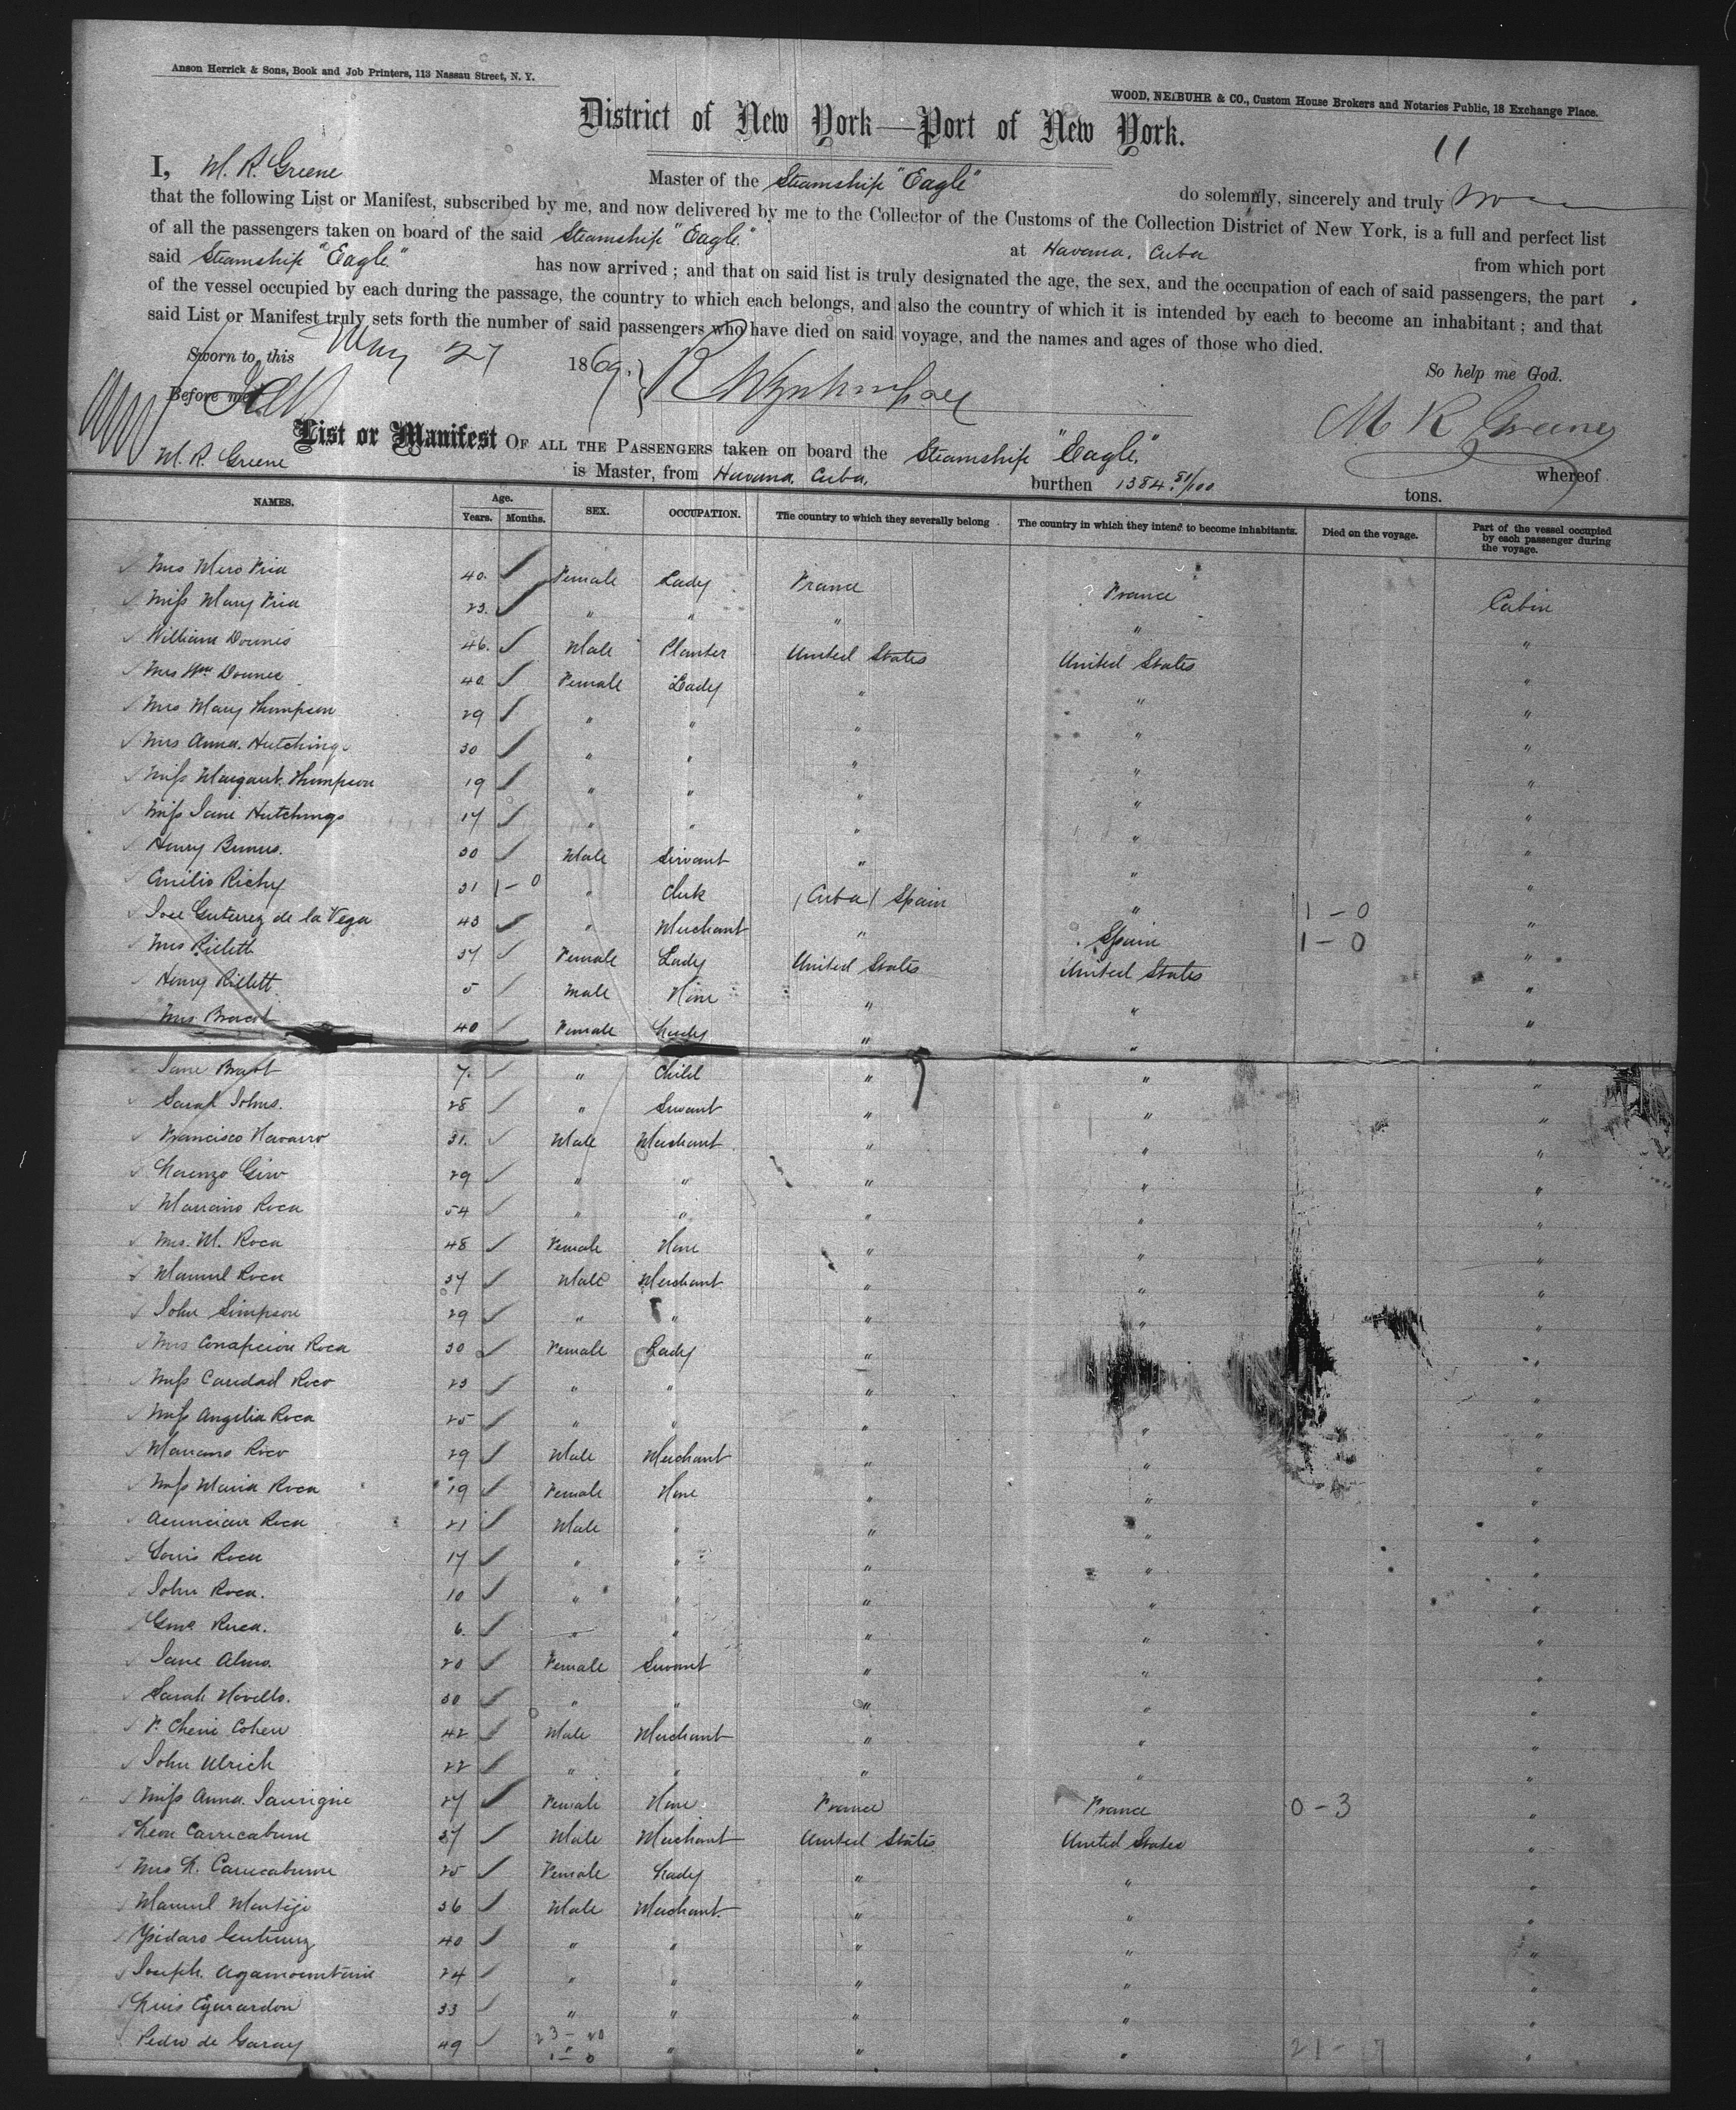 Anson Herrick & Sons, Book and Job Printers, 113 Nassau Street, N. Y.
WOOD, NEIBUHR & CO., Custom House Brokers and Notaries Public, 18 Exchange Place.
District of New York—Port of New York.
11
I, M. R. Greene Master of the Steamship "Eagle" do solemnly, sincerely and truly
that the following List or Manifest, subscribed by me, and now delivered by me to the Collector of the Customs of the Collection District of New York, is a full and perfect list
of all the passengers taken on board of the said Steamship "Eagle" at Havana, Cuba from which port
said Steamship "Eagle" has now arrived ; and that on said list is truly designated the age, the sex, and the occupation of each of said passengers, the part
of the vessel occupied by each during the passage, the country to which each belongs, and also the country of which it is intended by each to become an inhabitant ; and that
said List or Manifest truly sets forth the number of said passengers who have died on said voyage, and the names and ages of those who died.
Sworn to this May 27 1869. So help me God.
Before me
M R Greene
List or Manifest OF ALL THE PASSENGERS taken on board the Steamship "Eagle" whereof
M. R. Greene is Master, from Havana, Cuba, burthen 1384 51/100 tons.
NAMES. Age. Years. Months. SEX. OCCUPATION. The country to which they severally belong The country in which they intend to become inhabitants. Died on the voyage. Part of the vessel occupied by each passenger during the voyage.
Mrs Mero Pria 40. Female Lady France France Cabin
Miss Mary Pria 23. " " " " "
William Downes 46. Male Planter United States United States "
Mrs Wm Downes 40 Female Lady " " "
Mrs Mary Thompson 29 " " " " "
Mrs Anna. Hutchings 30 " " " " "
Miss Margaret Thompson 19 " " " " "
Miss Jane Hutchings 17 " " " " "
Henry 30 Male Servant " " "
Emilio Richy 31 1-0 " Clerk (Cuba) Spain " 1-0 "
Jose Guterrez de la Vega 43 " Merchant " Spain 1-0 "
Mrs Rillett 37 Female Lady United States United States "
Henry Rillett 5 Male None " " "
Mrs. Brast 40 Female Lady " " "
Jane Brast 7. " Child " " "
Sarah Johns. 28 " Servant " " "
Francisco Navarro 31. Male Merchant " " "
Lorenzo Giro 29 " " " " "
Mariano Roca 54 " " " " "
Mrs. M. Roca 48 Female None " " "
Manuel Roca 37 Male Merchant " " "
John Simpson 29 " " " " "
Mrs Concepcion Roca 30 Female Lady " "
Miss Caridad Roca 23 " " " "
Miss Angelia Roca 25 " " " " "
Mariano Roca 29 Male Merchant " " "
Miss Maria Roca 19 Female None " " "
Asuncion Roca 21 Male " " " "
Louis Roca 17 " " " " "
John Roca. 10 " " " " "
Roca. 6. " " " " "
Jane Almo. 20 Female Servant " " "
Sarah Novello. 30 " " " " "
P. Cheni Cohen 42 Male Merchant " " "
John Ulrich 22 " " " " "
Miss Anna. Sauvigne 27 Female None France France 0-3 "
Leon Carricaburu 37 Male Merchant United States United States "
Mrs L. Carricaburu 25 Female Lady " " "
Manuel Montijo 36 Male Merchant. " " "
Ysidaro Gutierrez 40 " " " " "
Joseph. 24 " " " " "
Luis Eguardon 33 " " " " "
Pedro de Garay 49 23-20 " 1-0 " " " 21-17 "